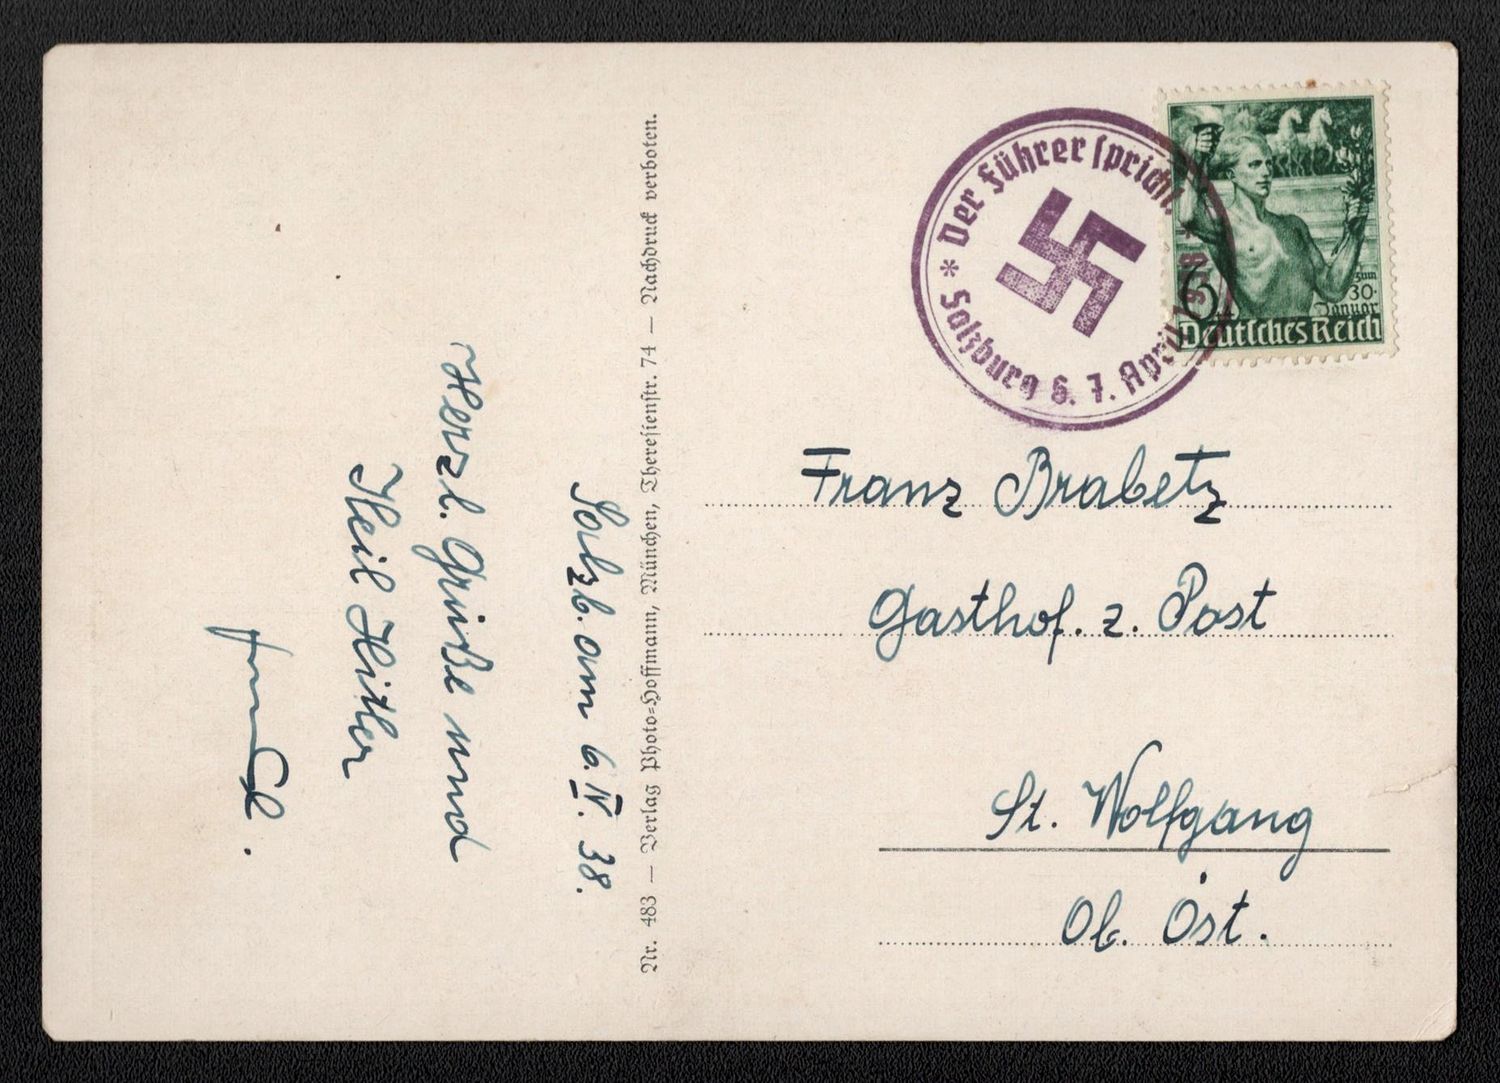 Salzb. am 6. IV. 38.
Herzl. Grüße und
Heil Hitler
Nr. 483 — Verlag Photo-Hoffmann, München, Theresienstr. 74 — Nachdruck verboten.
* Der Führer spricht. *
Salzburg 6. 7. April 1938
6
zum
30.
Januar
Deutsches Reich
Franz Brabetz
Gasthof. z. Post
St. Wolfgang
Ob. Öst.